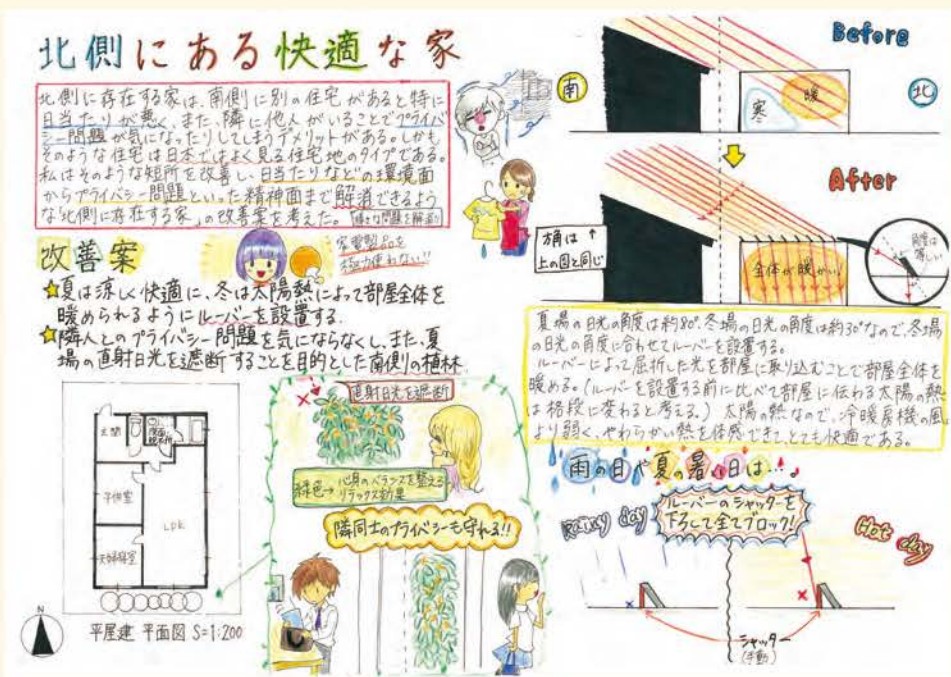 北側にある快適な家
北側に存在する家は、南側に別の住宅があると特に
日当たりが悪く、また、隣に他人がいることでプライバ
シー問題が気になったりしてしまうデメリットがある。しかも
そのような住宅は日本ではよく見る住宅地のタイプである。
私はそのような短所を改善し、日当たりなどの環境面
からプライバシー問題といった精神面まで解消できるよう
な「北側に存在する家」の改善案を考えた。
改善案
家電製品を
極力使わない!!
★夏は涼しく快適に、冬は太陽熱によって部屋全体を
暖められるようにルーバーを設置する。
★隣人とのプライバシー問題を気にならなくし、また、夏
場の直射日光を遮断することを目的とした南側の植林
玄関
洗面
脱衣所
子供室
LDK
夫婦寝室
N
平屋建 平面図 S=1:200
直射日光を遮断
緑色→心身のバランスを整える
リラックス効果
隣同士のプライバシーも守れる!!
Before
南
寒
暖
北
After
方角は↑
上の図と同じ
全体が暖かい!
角度は
等しい
夏場の日光の角度は約80°、冬場の日光の角度は約30°なので、冬場
の日光の角度に合わせてルーバーを設置する。
ルーバーによって屈折した光を部屋に取り込むことで部屋全体を
暖める。(ルーバーを設置する前に比べて部屋に伝わる太陽の熱
は格段に変わると考える。) 太陽の熱なので、冷暖房機の風
より弱く、やわらかい熱を体感できて、とても快適である。
雨の日や夏の暑い日は…。
Rainy day
ルーバーのシャッターを
下ろして全てブロック!
Hot day
シャッター
(手動)